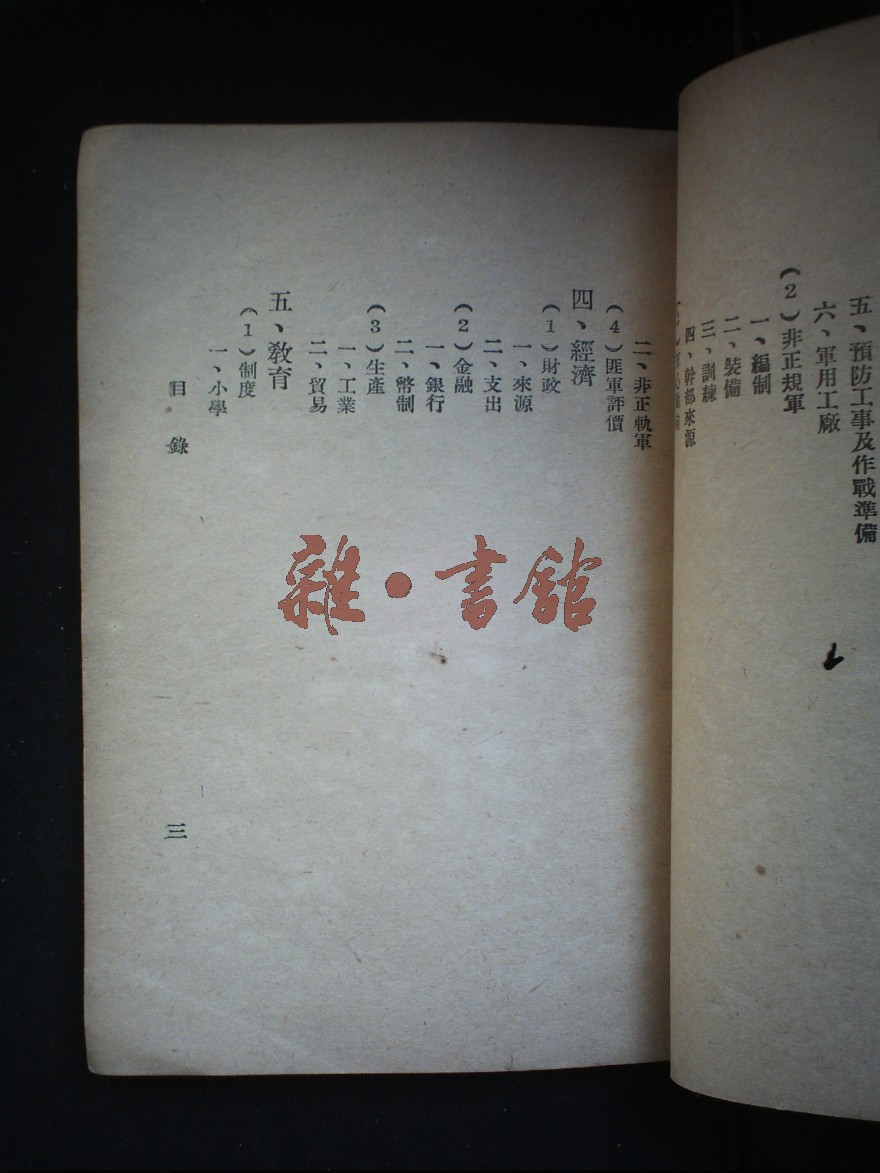 五、預防工事及作戰準備
六、軍用工廠
(2)非正規軍
一、編制
二、裝備
三、訓練
四、幹部來源
二、非正軌軍
(4)匪軍評價
四、經濟
(1)財政
一、來源
二、支出
(2)金融
一、銀行
二、幣制
(3)生產
一、工業
二、貿易
五、教育
(1)制度
一、小學
目錄
三
雜·書館